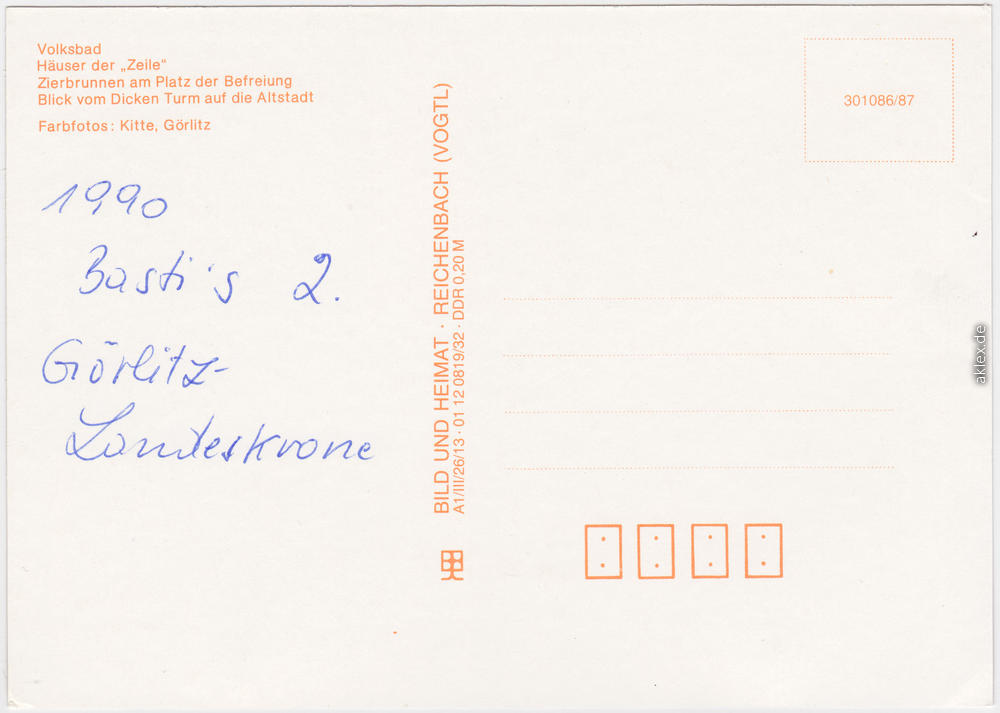 Volksbad
Häuser der „Zeile“
Zierbrunnen am Platz der Befreiung
Blick vom Dicken Turm auf die Altstadt
Farbfotos: Kitte, Görlitz
1990
Basti's 2.
Görlitz-
Landeskrone
BILD UND HEIMAT · REICHENBACH (VOGTL)
A1/III/26/13 · 01 12 0819/32 · DDR 0,20 M
301086/87
aklex.de